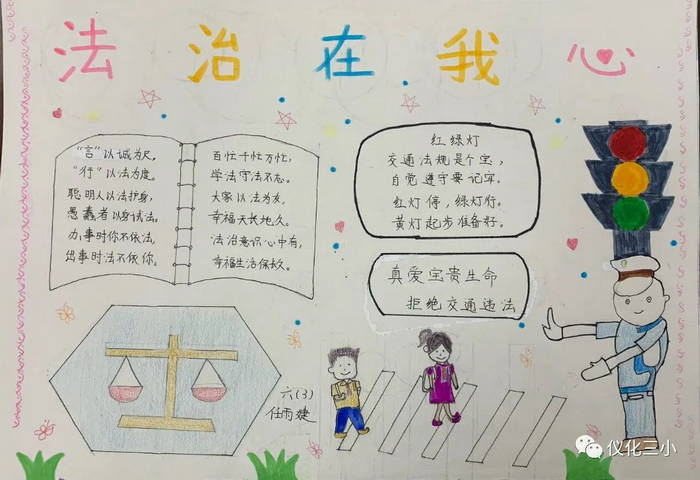 法治在我心
“言”以诚为尺,
“行”以法为度。
聪明人以法护身,
愚蠢者以身试法。
办事时你不依法,
出事时法不依你。
百忙千忙万忙,
学法守法不忘。
大家以法为友,
幸福天长地久。
法治意识心中有,
幸福生活保久。
红绿灯
交通法规是个宝,
自觉遵守要记牢。
红灯停,绿灯行。
黄灯起步准备好。
真爱宝贵生命
拒绝交通违法
六(3)
任雨婕
仪化三小